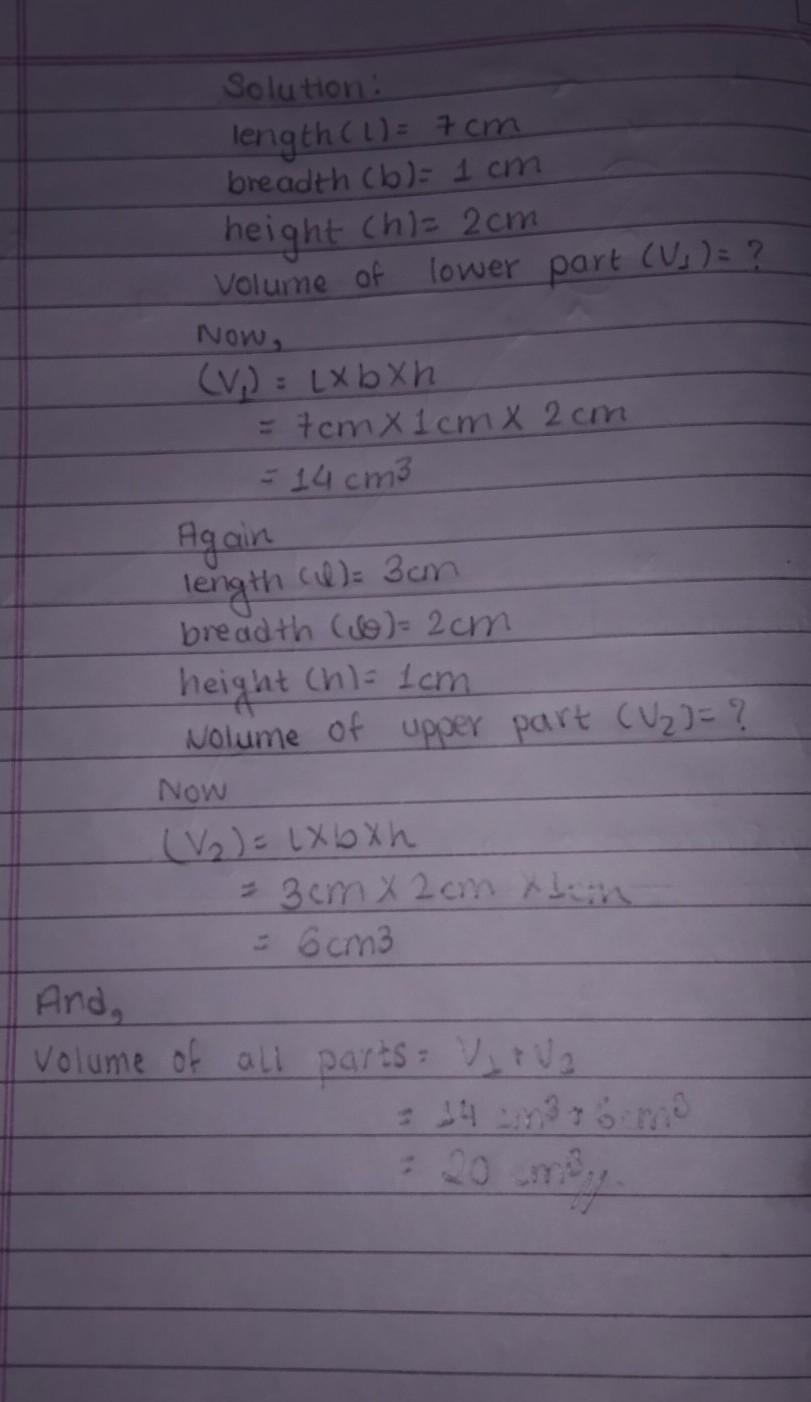 Solution:
length (l) = 7 cm
breadth (b) = 1 cm
height (h) = 2 cm
Volume of lower part (V₁) = ?
Now,
(V₁) = l×b×h
= 7cm × 1cm × 2 cm
= 14 cm³
Again
length (l) = 3cm
breadth (b) = 2cm
height (h) = 1cm
Volume of upper part (V₂) = ?
Now
(V₂) = l×b×h
= 3cm × 2cm × 1cm
= 6cm3
And,
Volume of all parts = V₁ + V₂
= 14 cm³ + 6 cm³
= 20 cm³//.